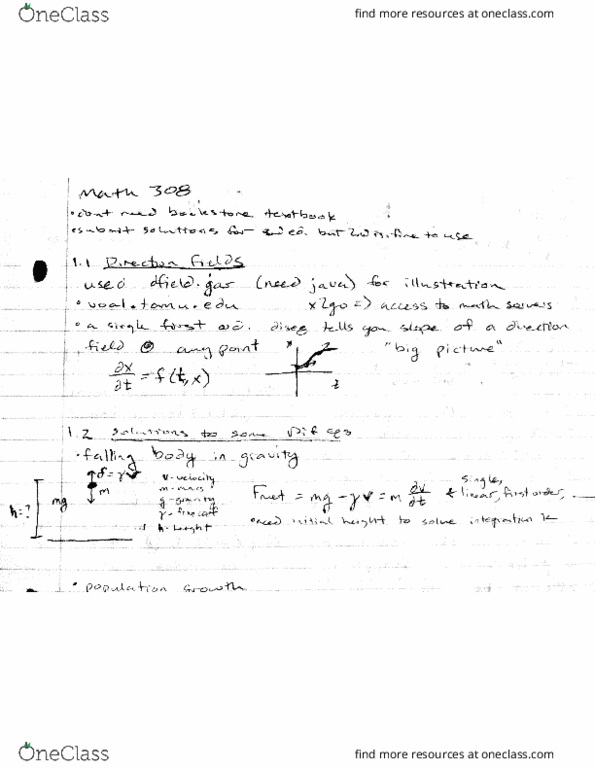 OneClass
find more resources at oneclass.com
Math 308
• dont need bookstore textbook
• submit solutions for ed. but 2nd is fine to use
1.1 Direction Fields
used dfield.jar (need java) for illustration
• voal.tamu.edu x2go => access to math servers
• a single first order diffeq tells you slope of a direction
field @ any point "big picture"
∂x/∂t = f(t,x)
x
t
1.2 Solutions to some Diffeqs
• falling body in gravity
δ = γv
m
mg
h=?
v-velocity
m-mass
g-gravity
γ-fric coeff
h-height
Fnet = mg - γv = m ∂v/∂t
single,
linear, first order,
• need initial height to solve integration k
• population growth
OneClass
find more resources at oneclass.com